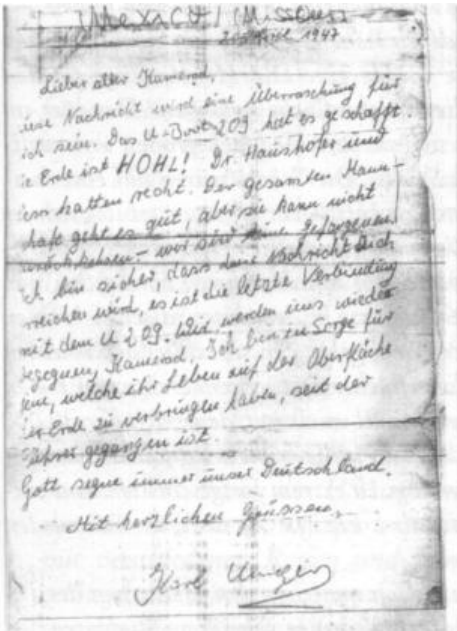 Mexico / Missouri
1947
Lieber alter Kamerad,
iese Nachricht wird eine Überraschung für
ich sein. Das U-Boot 209 hat es geschafft.
ie Erde ist HOHL! Dr. Haushofer und
ess hatten recht. Der gesamten Mann-
haft geht es gut, aber sie kann nicht
zurückkehren - wir sind keine Gefangenen.
ch bin sicher, dass diese Nachricht Dich
rreichen wird, es ist die letzte Verbindung
mit dem U 209. Wir werden uns wieder
begegnen, Kamerad. Ich bin in Sorge für
jene, welche ihr Leben auf der Oberfläche
er Erde zu verbringen haben, seit der
ührer gegangen ist.
Gott segne immer unser Deutschland.
Mit herzlichen Grüssen,
Karl Unger